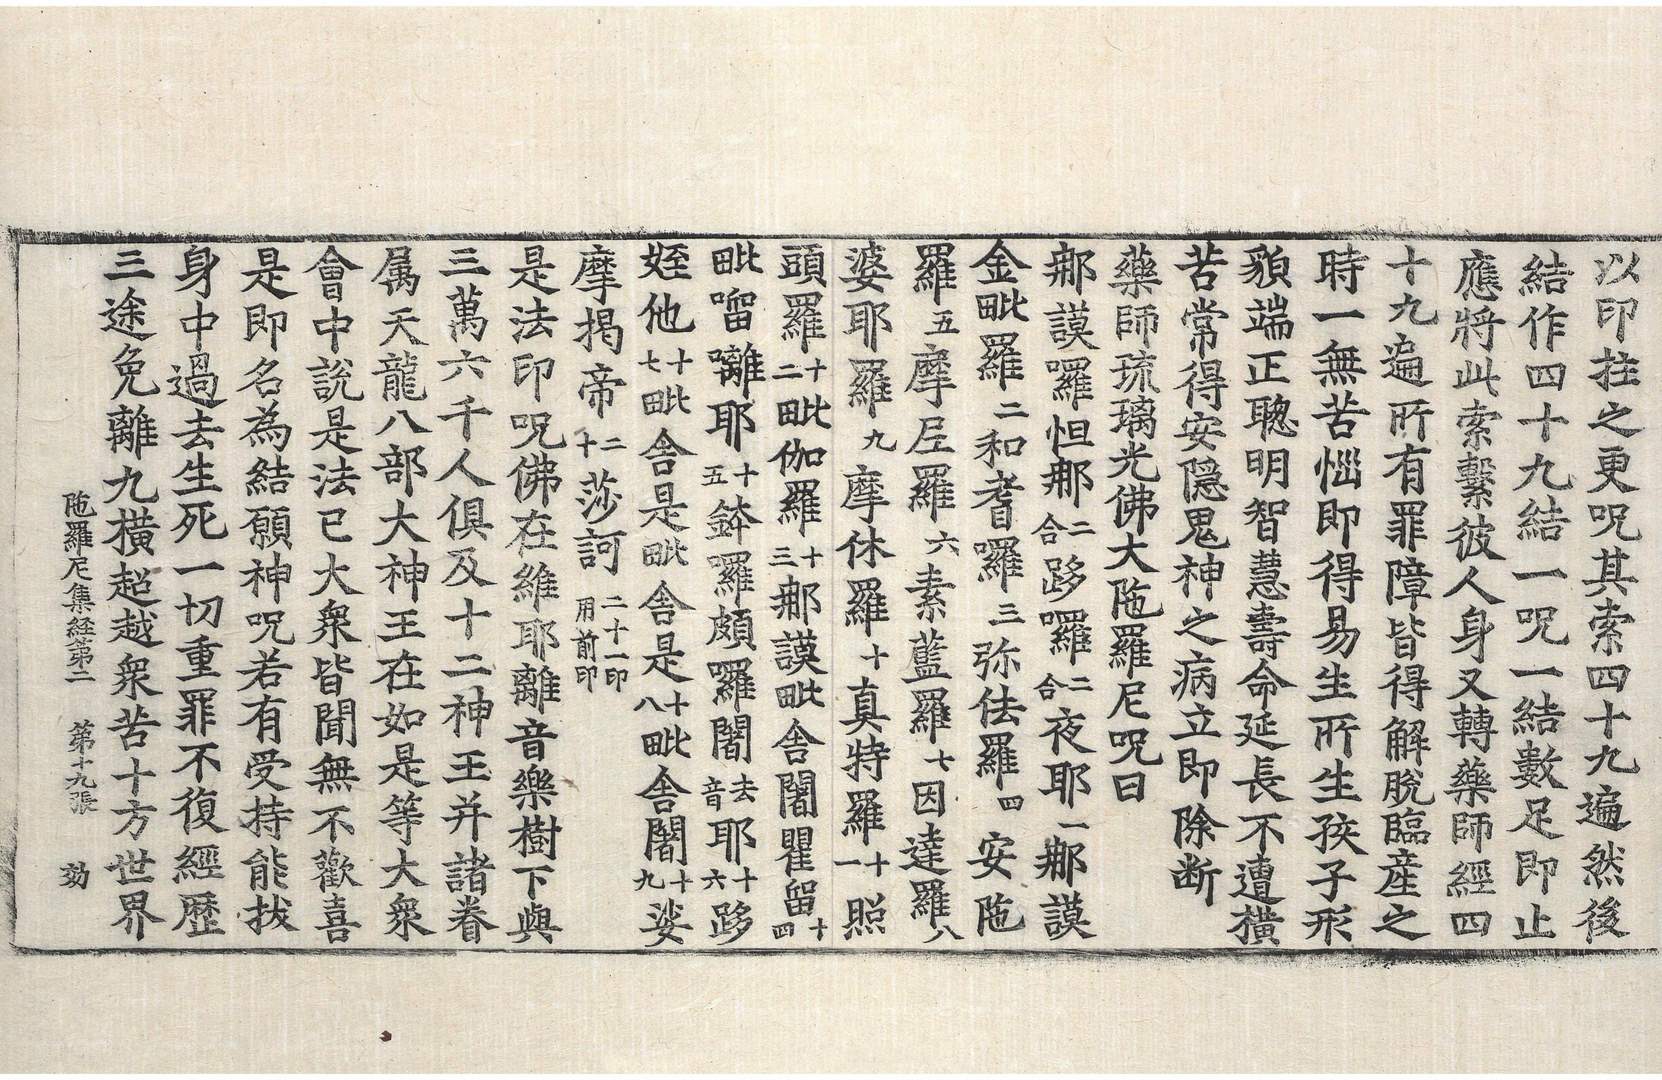 以印拄之更呪其索四十九遍然後
結作四十九結一呪一結數足即止
應將此索繫彼人身又轉藥師經四
十九遍所有罪障皆得解脫臨産之
時一無苦惱即得易生所生孩子形
皃端正聦明智慧壽命延長不遭橫
苦常得安隱鬼神之病立即除断
藥師琉璃光佛大陁羅尼呪曰
那謨囉怛那二合跢囉二合夜耶一那謨
金毗羅二和耆囉三弥佉羅四安陁
羅五摩尼羅六素藍羅七因達羅八
婆耶羅九摩休羅十真特羅十一照
頭羅十二毗伽羅十三那謨毗舍闍瞿留十四
毗嚠囄耶十五鉢囉頗囉闍去音耶十六跢
姪他十七毗舍是毗舍是十八毗舍闍十九娑
摩揭帝二十莎訶二十一印用前印
是法印呪佛在維耶離音樂樹下與
三萬六千人俱及十二神王并諸眷
属天龍八部大神王在如是等大衆
會中說是法已大衆皆聞無不歡喜
是即名為結願神呪若有受持能拔
身中過去生死一切重罪不復經歷
三途免離九橫超越衆苦十方世界
陁羅尼集經第二　第十九張　効